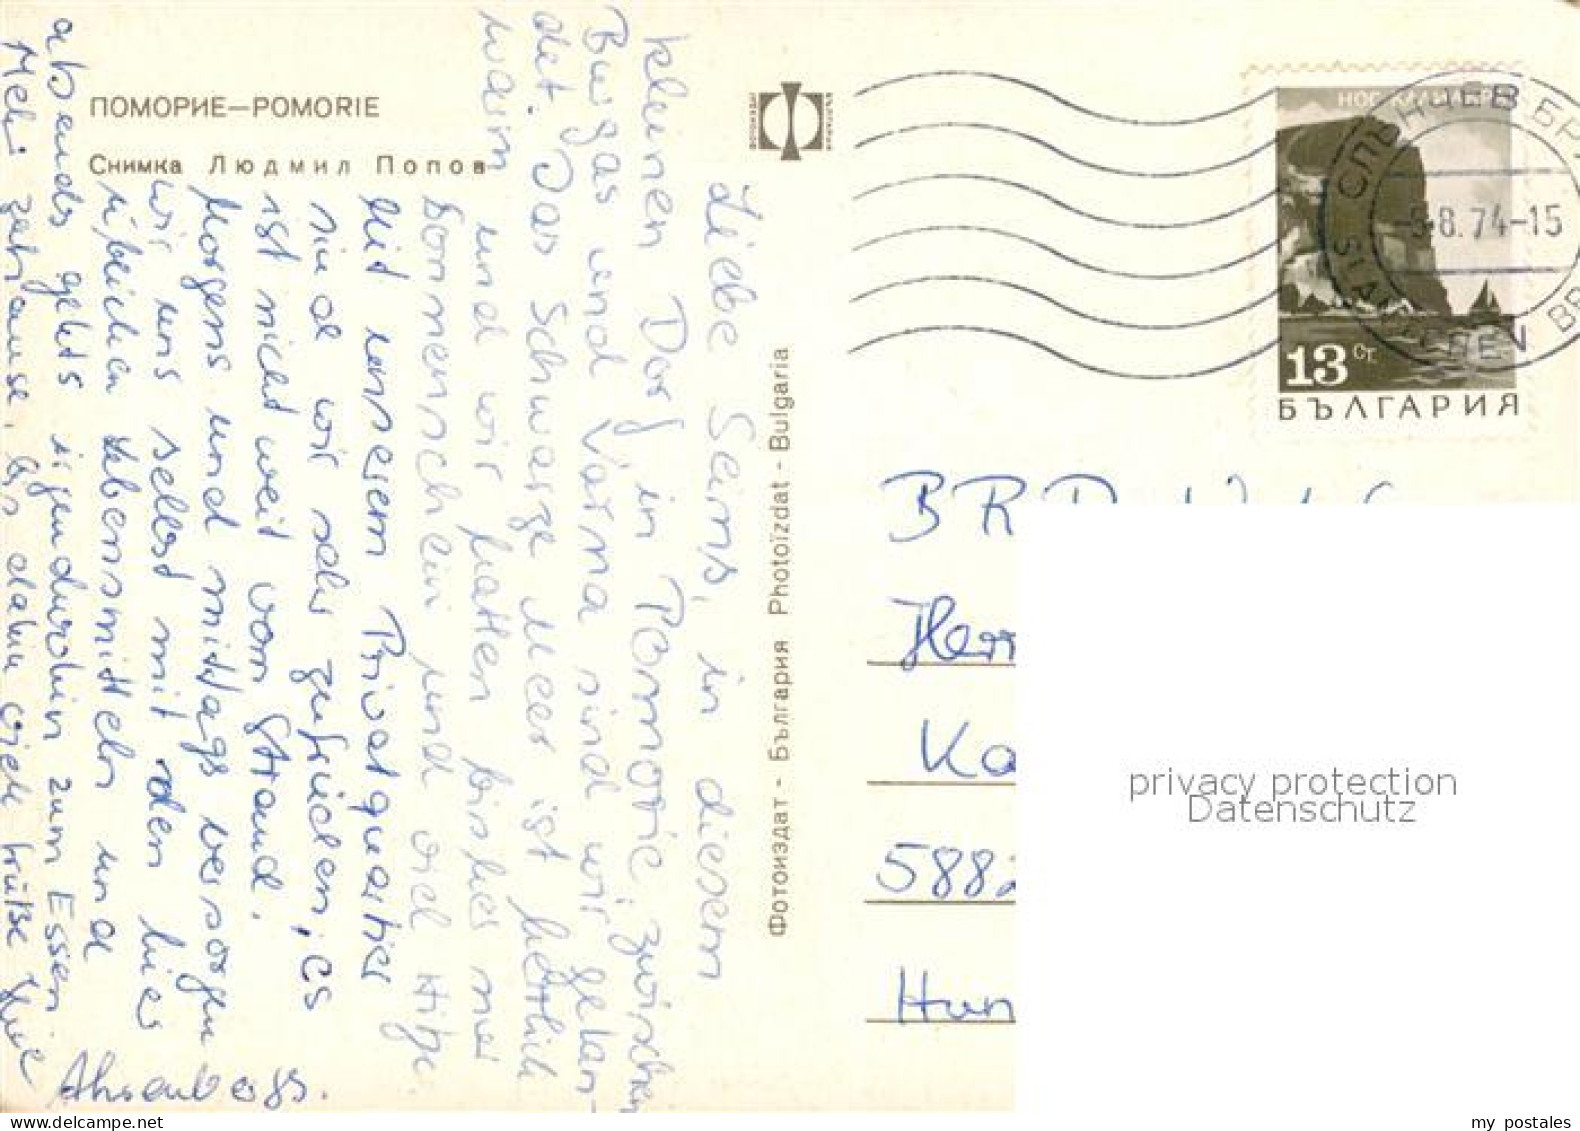 ПОМОРИЕ—POMORIE
Снимка Людмил Попов
ФОТОИЗДАТ
БЪЛГАРИЯ
Фотоиздат - България Photoïzdat - Bulgaria
Liebe Seins, in diesem
kleinen Dorf in Pomorie, zwischen
Burgas und Varna sind wir gelan-
det. Das Schwarze Meer ist herrlich
warm und wir hatten bisher nur
Sonnenschein und viel Hitze.
Mit unserem Privatquartier
sind wir sehr zufrieden, es
ist nicht weit vom Strand.
Morgens und mittags versorgen
wir uns selbst mit den hier
üblichen Lebensmitteln und
abends gehts irgendwohin zum Essen
Mehr zuhause, bis dahin viele Grüße Ihre
Ahsenbergs.
НОС КАЛИАКРА
13 Ст.
БЪЛГАРИЯ
СЛЪНЧЕВ БР
-5.8.74-15
SLA
BRD
Herr
Ka
588
Hun
privacy protection
Datenschutz
my postales